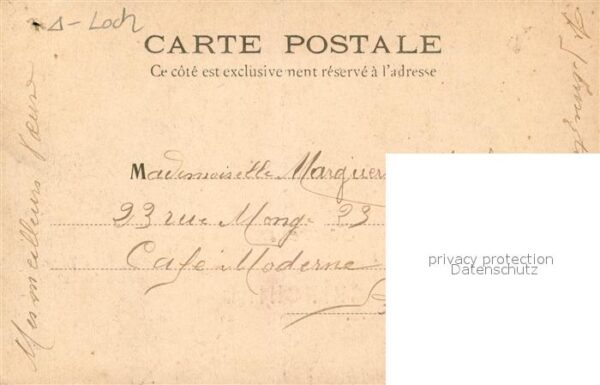 Δ - Loch
CARTE POSTALE
Ce côté est exclusivement réservé à l'adresse
Mademoiselle Marguer
23 rue Monge 23
Café Moderne
Mes meilleurs Vœux
privacy protection
Datenschutz